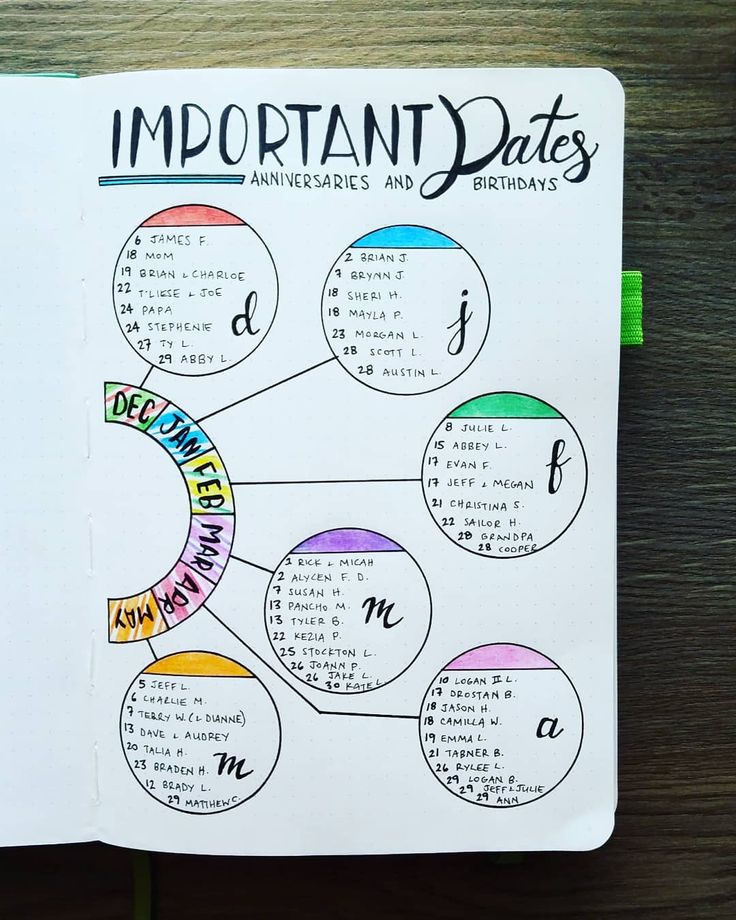 IMPORTANT Dates
ANNIVERSARIES AND BIRTHDAYS
6 JAMES F.
18 MOM
19 BRIAN & CHARLOE
22 T'LIESE & JOE
24 PAPA
24 STEPHENIE
27 TY L.
29 ABBY L.
d
2 BRIAN J.
7 BRYNN J.
18 SHERI H.
18 MAYLA P.
23 MORGAN L.
28 SCOTT L.
28 AUSTIN L.
j
DEC
JAN
FEB
MAR
APR
MAY
8 JULIE L.
15 ABBEY L.
17 EVAN F.
17 JEFF & MEGAN
21 CHRISTINA S.
22 SAILOR H.
28 GRANDPA
28 COOPER
f
1 RICK & MICAH
2 ALYCEN F. D.
7 SUSAN H.
13 PANCHO M.
13 TYLER B.
22 KEZIA P.
25 STOCKTON L.
26 JOANN P.
26 JAKE L.
30 KATE L.
m
5 JEFF L.
6 CHARLIE M.
7 TERRY W. (& DIANNE)
13 DAVE & AUDREY
20 TALIA H.
23 BRADEN H.
12 BRADY L.
29 MATTHEW C.
m
10 LOGAN II L.
17 DROSTAN B.
18 JASON H.
18 CAMILLA W.
19 EMMA L.
21 TABNER B.
26 RYLEE L.
29 LOGAN B.
29 JEFF & JULIE
29 ANN
a